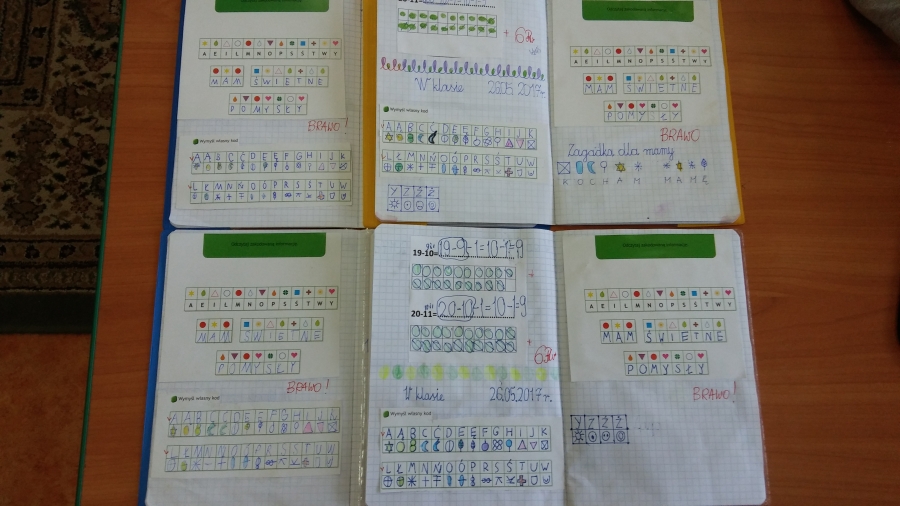 A E I L M N O P S Ś T W Y
MAM ŚWIETNE
POMYSŁY
BRAWO!
Wymyśl własny kod
A Ą B C Ć D E Ę F G H I J K
L Ł M N Ń O Ó P R S Ś T U W
+ 6
W klasie 26.05.2017r.
Wymyśl własny kod
A Ą B C Ć D E Ę F G H I J K
L Ł M N Ń O Ó P R S Ś T U W
Y Z Ź Ż
A E I L M N O P S Ś T W Y
MAM ŚWIETNE
POMYSŁY
BRAWO
Zagadka dla mamy
KOCHAM MAMĘ
A E I L M N O P S Ś T W Y
MAM ŚWIETNE
POMYSŁY
BRAWO!
Wymyśl własny kod
A Ą B C Ć D E Ę F G H I J K
L Ł M N Ń O Ó P R S Ś T U W
19-10=19-9-1=10-1=9
20-11=20-10-1=10-1=9
6
W klasie 26.05.2017r.
Wymyśl własny kod
A Ą B C Ć D E Ę F G H I J K
L Ł M N Ń O Ó P R S Ś T U W
A E I L M N O P S Ś T W Y
MAM ŚWIETNE
POMYSŁY
BRAWO!
Y Z Ź Ż